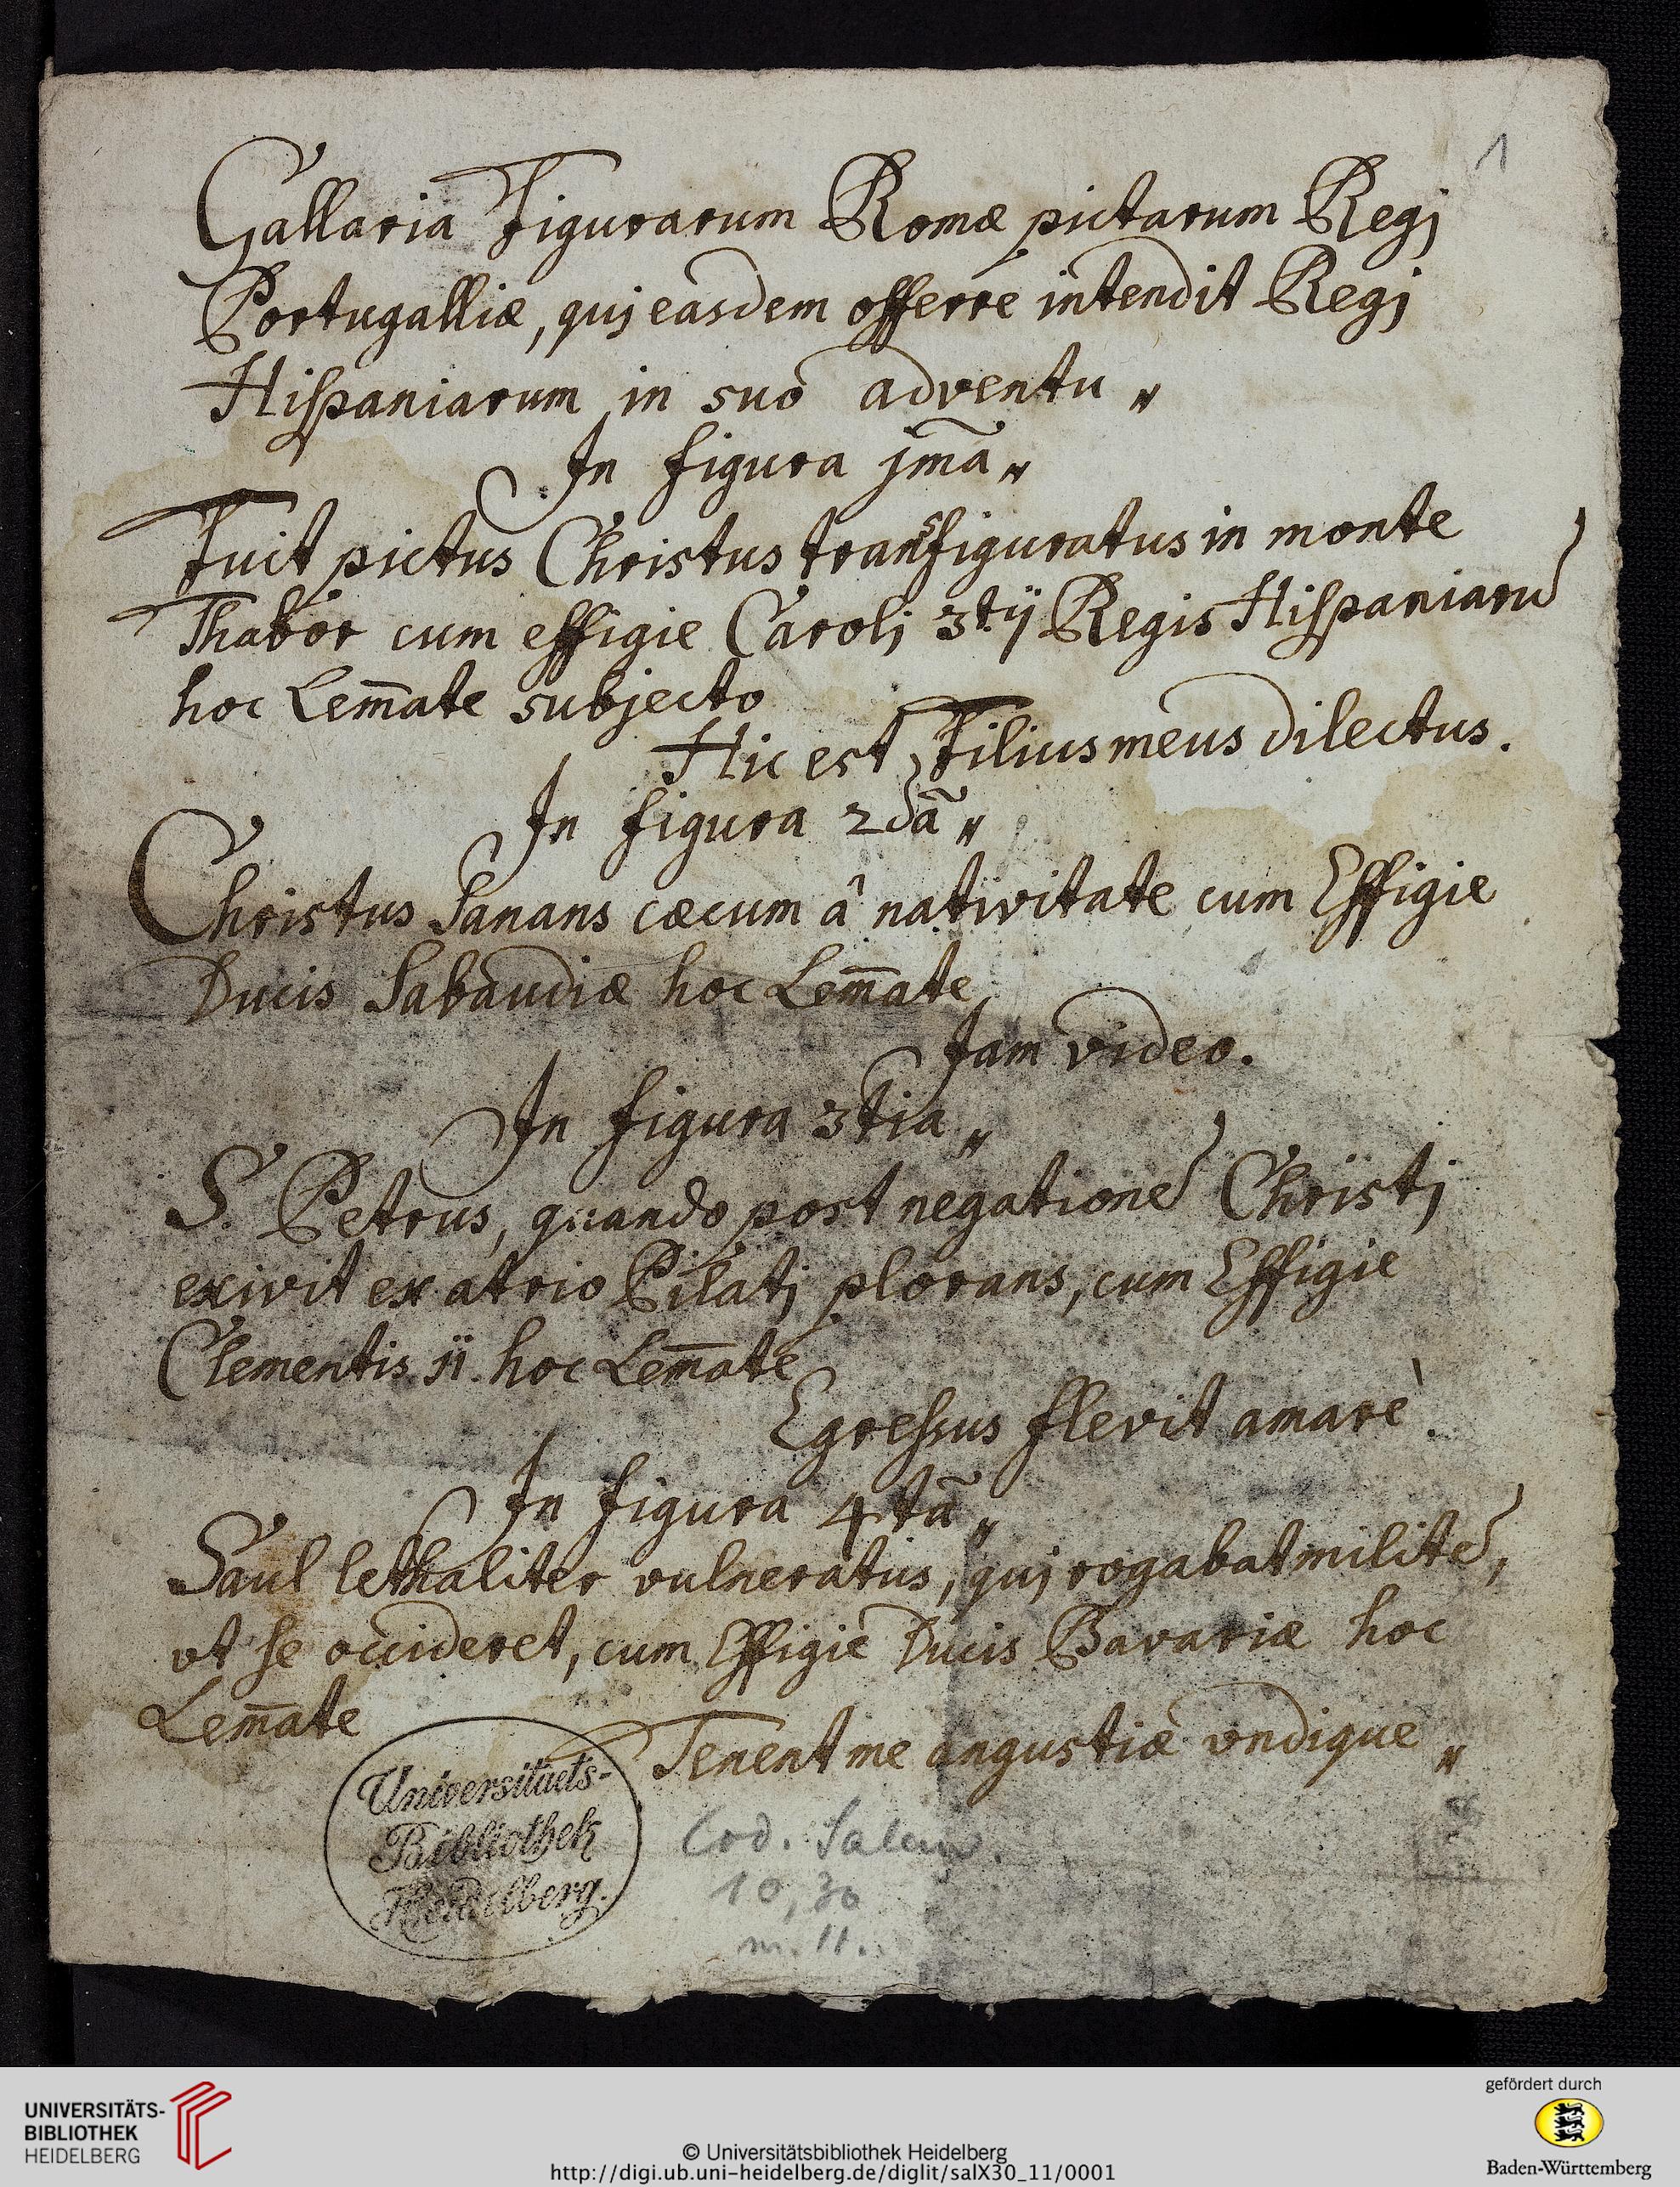 1
Gallaria Figurarum Romæ pictarum Regj
Portugalliæ, quj easdem offerre intendit Regj
Hispaniarum in suo adventu „
In figura jmã „
Fuit pictus Christus transfiguratus in monte
Thabor cum effigie Carolj 3tij Regis Hispaniarū
hoc Lem̄ate subjecto
Hic est Filius meus dilectus.
In figura 2dã „
Christus Sanans cæcum â nativitate cum Effigie
Ducis Sabaudiæ hoc Lem̄ate
Jam video.
In figura 3tia „
S. Petrus, quando post negationē Christj
exivit ex atrio Pilatj plorans, cum Effigie
Clementis 11. hoc Lem̄ate
Egressus flevit amarè.
In figura 4tã „
Saul lethaliter vulneratus, quj rogabat militē,
vt se occideret, cum Effigie Ducis Bavariæ hoc
Lem̄ate
Tenent me angustiæ vndique „
Universitaets-
Bibliothek
Heidelberg.
Cod. Salem.
10,30
m. 11.
UNIVERSITÄTS-
BIBLIOTHEK
HEIDELBERG
© Universitätsbibliothek Heidelberg
http://digi.ub.uni-heidelberg.de/diglit/salX30_11/0001
gefördert durch
Baden-Württemberg